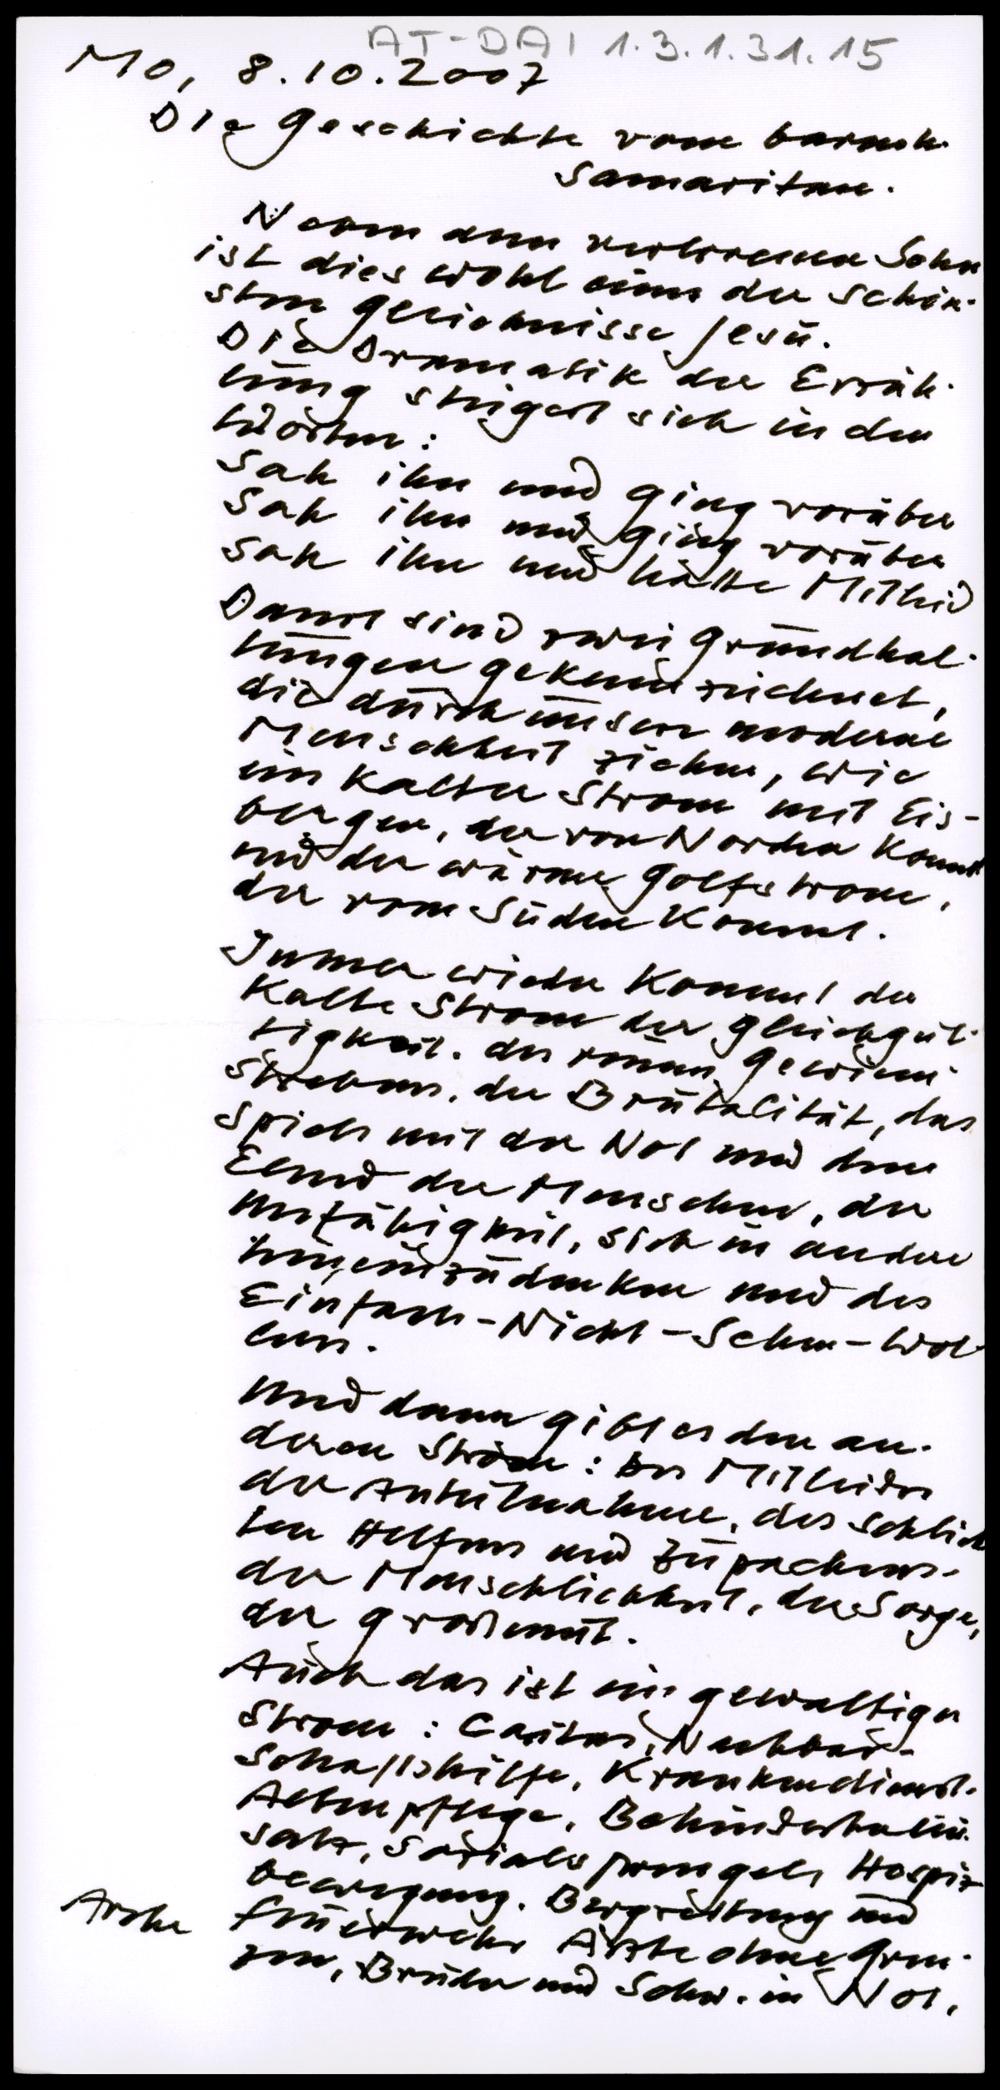 AT-DAI 1.3.1.31.15
Mo, 8.10.2007
Die Geschichte vom barmh.
Samaritan.
Neben dem verlorenen Sohn
ist dies wohl eines der schön-
sten Gleichnisse Jesu.
Die Dramatik der Erzäh-
lung steigert sich in den
Worten:
Sah ihn und ging vorüber
Sah ihn und ging vorüber
Sah ihn und hatte Mitleid
Damit sind zwei Grundhal-
tungen gekennzeichnet,
die durch unsere moderne
Menschheit ziehen, wie
ein kalter Strom mit Eis-
bergen, der von Norden kommt
und der warme Golfstrom,
der vom Süden kommt.
Immer wieder kommt der
kalte Strom der Gleichgül-
tigkeit, des reinen Gewinn-
strebens, der Brutalität, das
Spiels mit der Not und dem
Elend der Menschen, der
Unfähigkeit, sich in andere
hineinzudenken und des
Einfach-Nicht-Sehen-Wol-
lens.
Und dann gibt es den an-
deren Strom: des Mitleides
der Anteilnahme, des schlich-
ten Helfens und Zupackens,
der Menschlichkeit, der Sorge,
der Großmut.
Auch das ist ein gewaltiger
Strom: Caritas, Nachbar-
schaftshilfe, Krankendienst,
Altenpflege,
Sozialsprengel, Hospiz-
bewegung, Bergrettung und
Arche Feuerwehr Ärzte ohne Gren-
zen, Brüder und Schw. in Not,